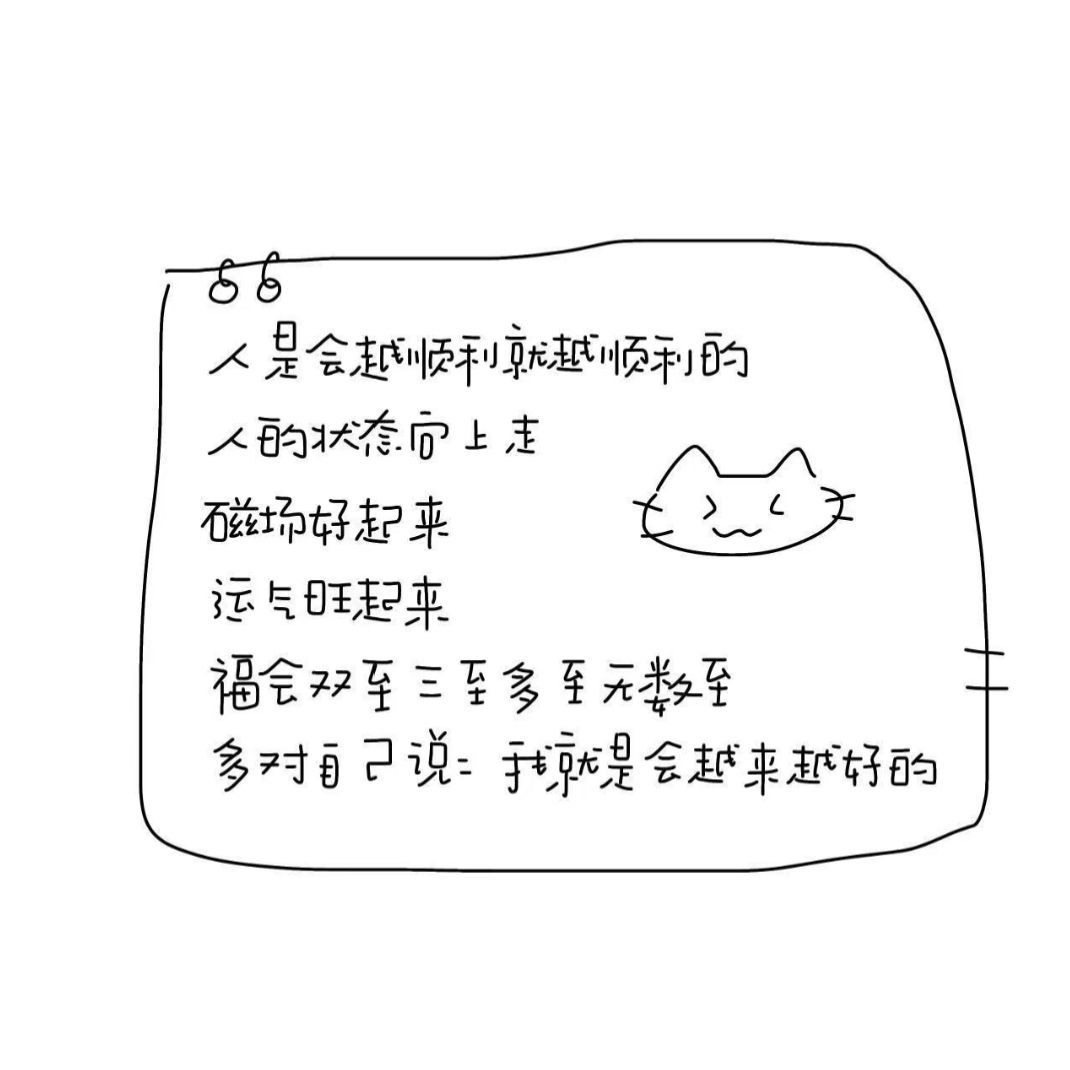 人是会越顺利就越顺利的
人的状态向上走
磁场好起来
运气旺起来
福会双至三至多至无数至
多对自己说：我就是会越来越好的